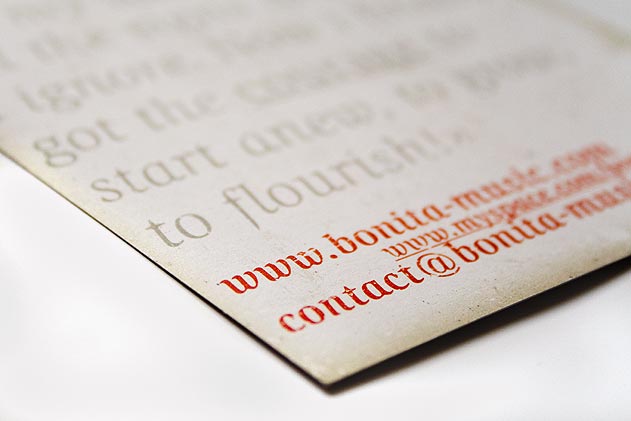 ignore, how I
got the courage to
start anew, to grow,
to flourish!»
www.bonita-music.com
www.myspace.com
contact@bonita-mus